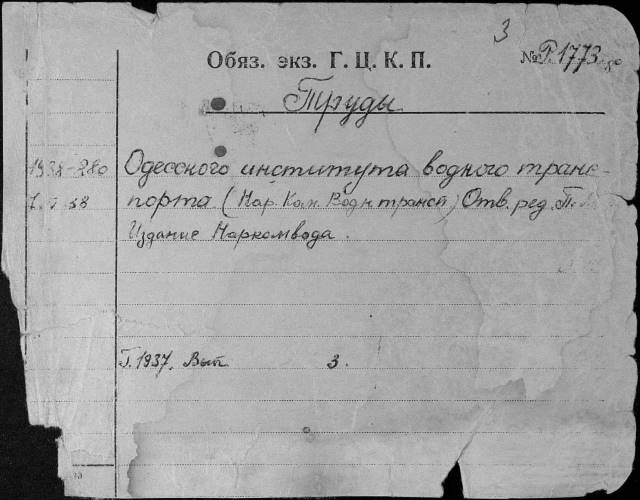 3
Обяз. экз. Г. Ц. К. П. № Р.1773
Труды
1938-280 Одесского института водного транс-
порта (Нар. Ком. Водн трансп) Отв. ред. П.
Издание Наркомвода.
Г. 1937. Вып 3.